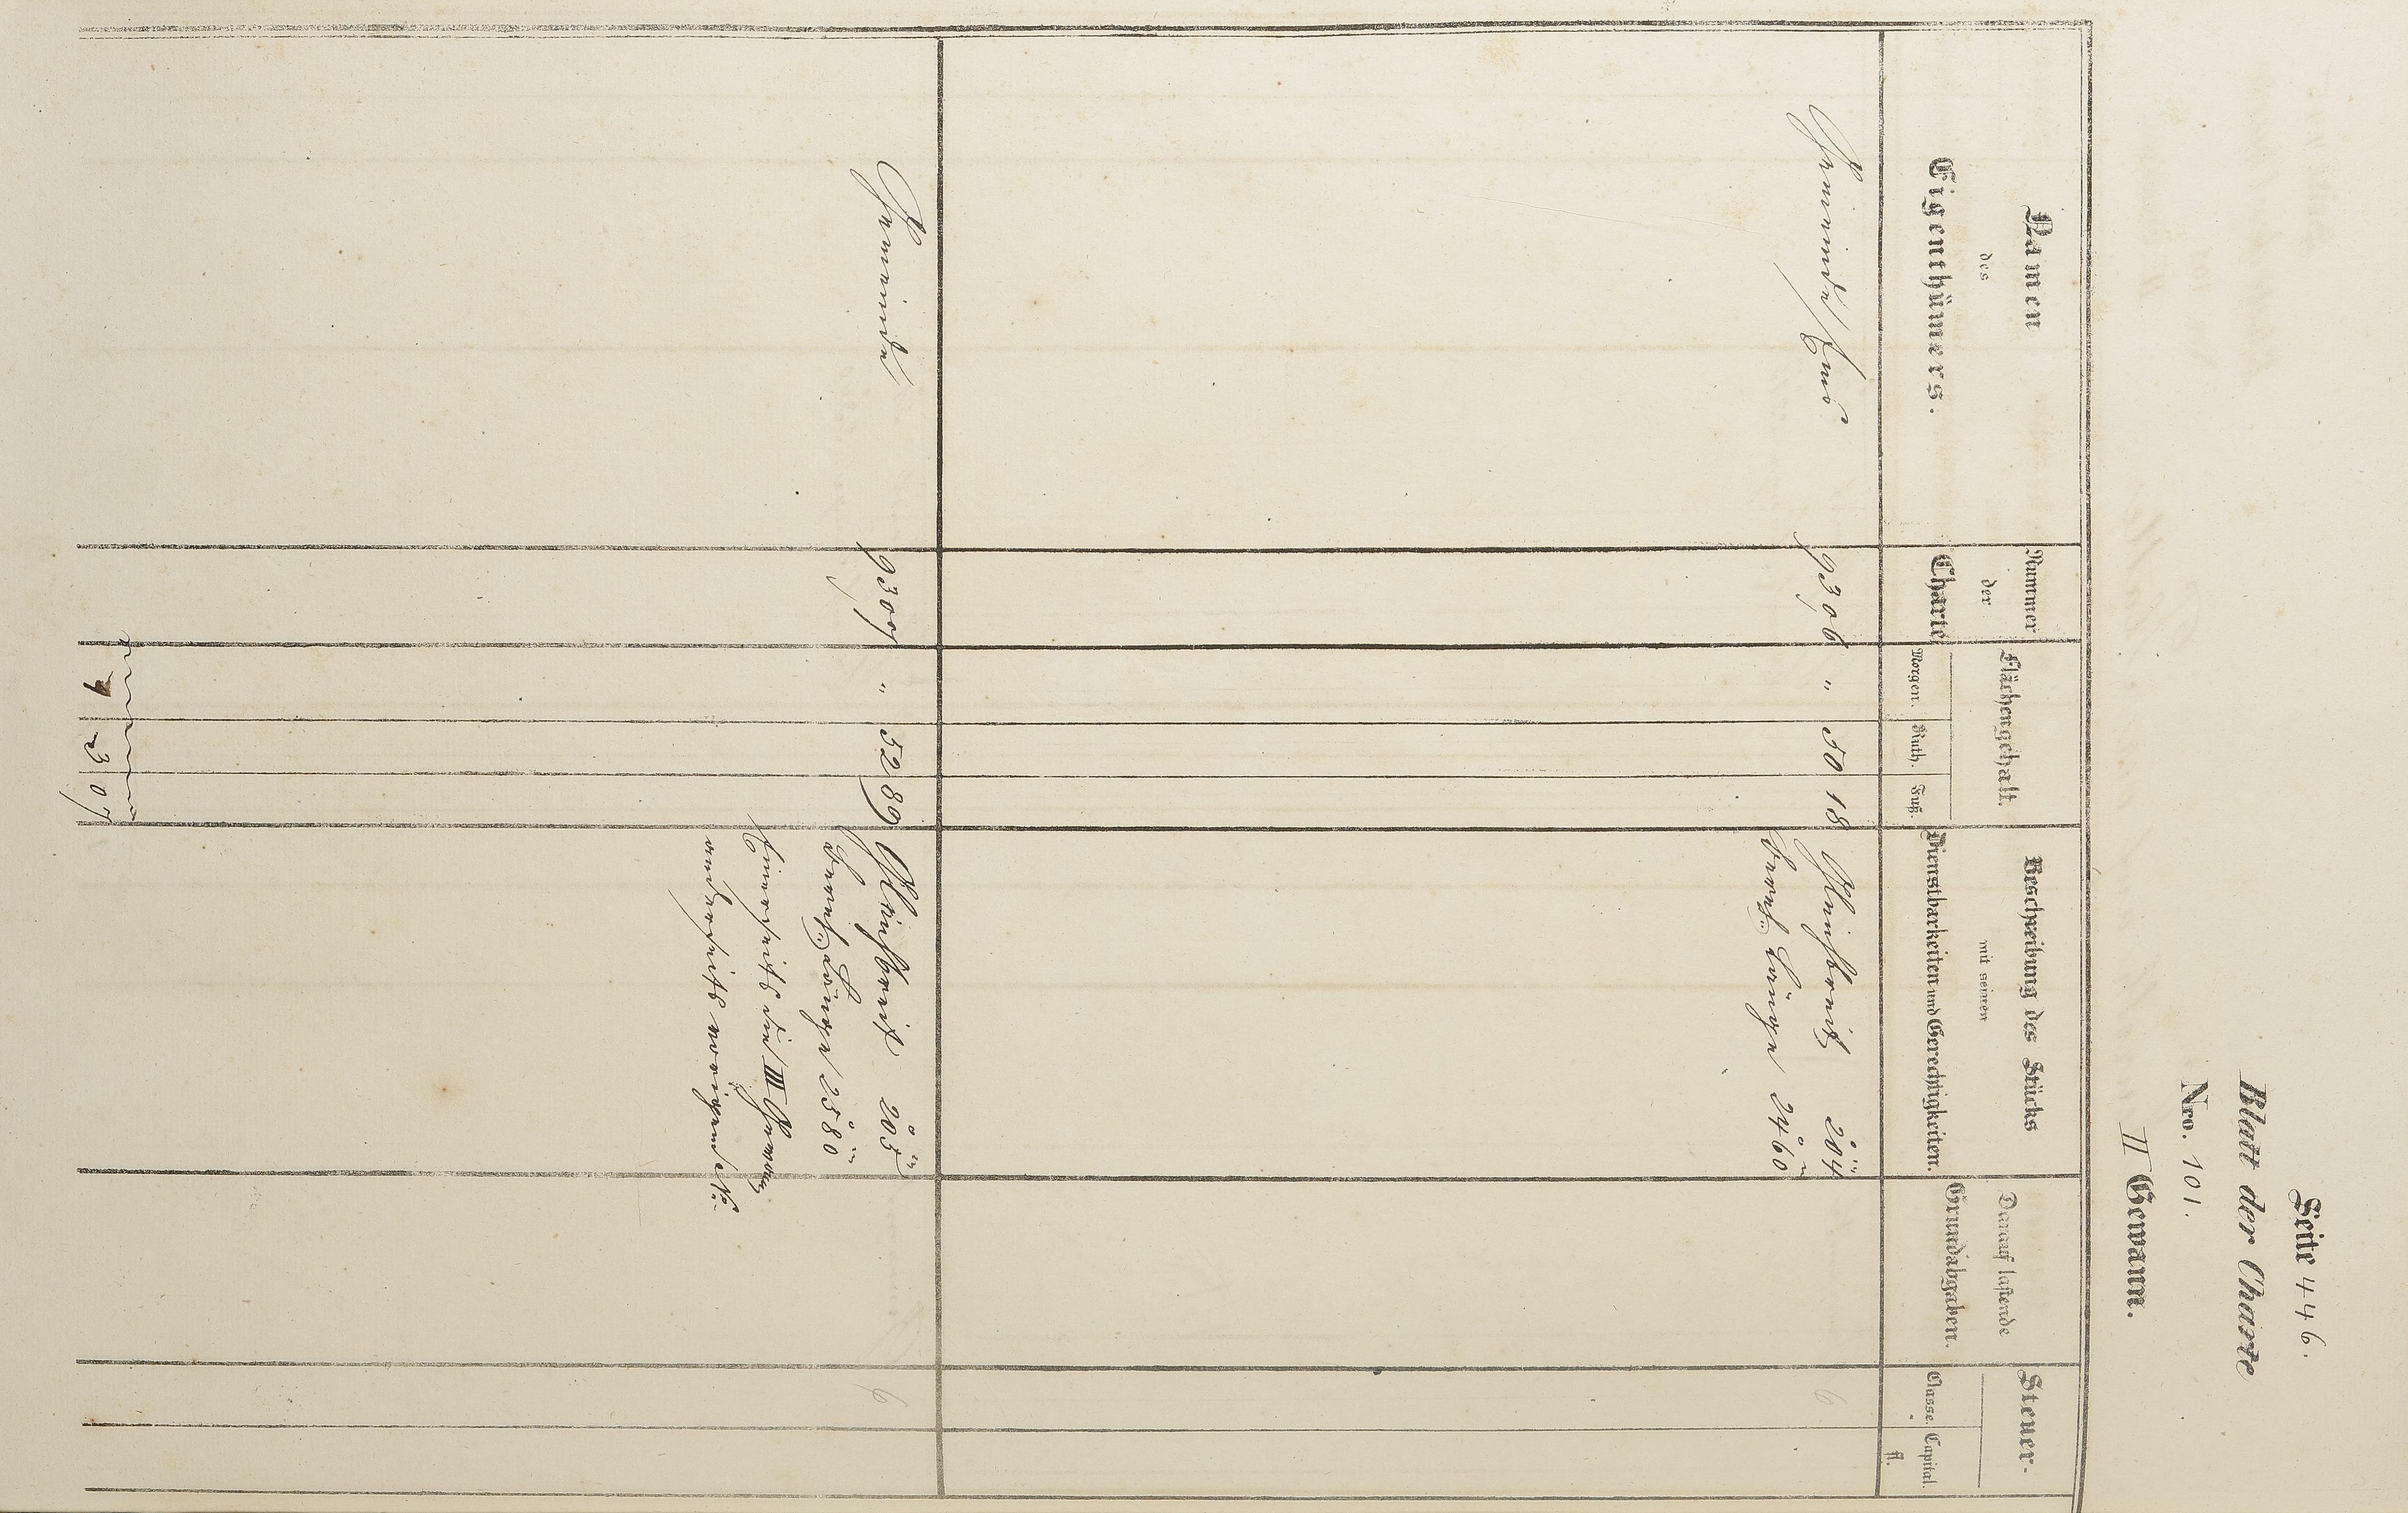 Seite 446.
Blatt der Charte
Nro. 101.
II Gewann.
Namen
des
Eigenthümers.
Nummer
der
Charte
Flächengehalt.
Morgen. Ruth. Fuß.
Beschreibung des Stücks
mit seinen
Dienstbarkeiten und Gerechtigkeiten.
Darauf lastende
Grundabgaben.
Steuer-
Classe. Capital.
fl.
Gemeinde 9306 " 50 18 Gleichbreit 204 6
berech: Länge 2460
Gemeinde 9307 " 52 89 Gleichbreit 205 6
berech: Länge 2580
Einerseits die III Gewann
anderseits vorigende No.
4 3 07